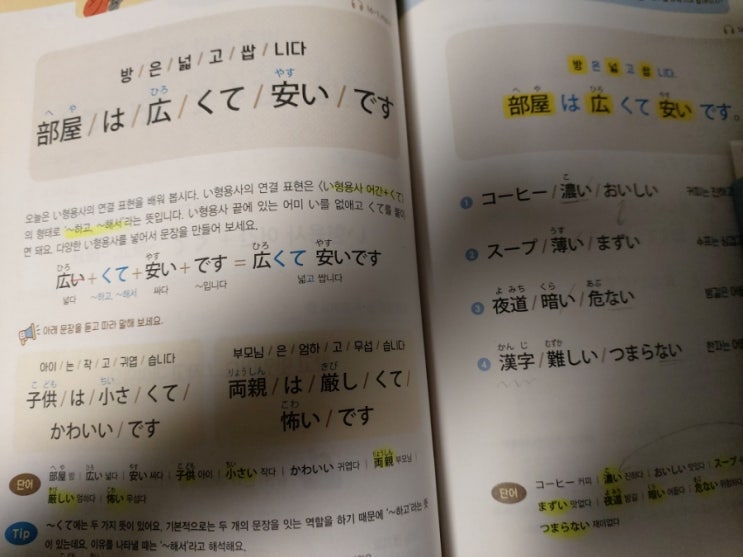 방 / 은 / 넓 / 고 / 쌉 / 니다
へ や ひろ やす
部屋 / は / 広 / くて / 安い / です
오늘은 い형용사의 연결 표현을 배워 봅시다. い형용사의 연결 표현은 <い형용사 어간+くて>
의 형태로 '~하고, ~해서'라는 뜻입니다. い형용사 끝에 있는 어미 い를 없애고 くて를 붙이
면 돼요. 다양한 い형용사를 넣어서 문장을 만들어 보세요.
ひろ やす ひろ やす
広い + くて + 安い + です = 広くて 安いです
넓다 ~하고, ~해서 싸다 ~입니다 넓고 쌉니다
아래 문장을 듣고 따라 말해 보세요.
아이 / 는 / 작 / 고 / 귀엽 / 습니다
こ ども ちい
子供 / は / 小さ / くて /
かわいい / です
부모님 / 은 / 엄하 / 고 / 무섭 / 습니다
りょうしん きび
両親 / は / 厳し / くて /
こわ
怖い / です
단어
へ や ひろ やす こ ども ちい りょうしん
部屋 방 | 広い 넓다 | 安い 싸다 | 子供 아이 | 小さい 작다 | かわいい 귀엽다 | 両親 부모님 |
厳しい 엄하다 | 怖い 무섭다
Tip
~くて에는 두 가지 뜻이 있어요. 기본적으로는 두 개의 문장을 잇는 역할을 하기 때문에 '~하고'라는 뜻
이 있는데요. 이유를 나타낼 때는 '~해서'라고 해석해요.
방 은 넓 고 쌉 니다.
へ や ひろ やす
部屋 は 広 くて 安い です。
こ
1 コーヒー / 濃い / おいしい
커피는
うす
2 スープ / 薄い / まずい
수프는
よ みち くら あぶ
3 夜道 / 暗い / 危ない
밤길은
かん じ むずか
4 漢字 / 難しい / つまらない
한자는
단어
コーヒー 커피 | 濃い 진하다 | おいしい 맛있다 | スープ
まずい 맛없다 | 夜道 밤길 | 暗い 어둡다 | 危ない
つまらない 재미없다